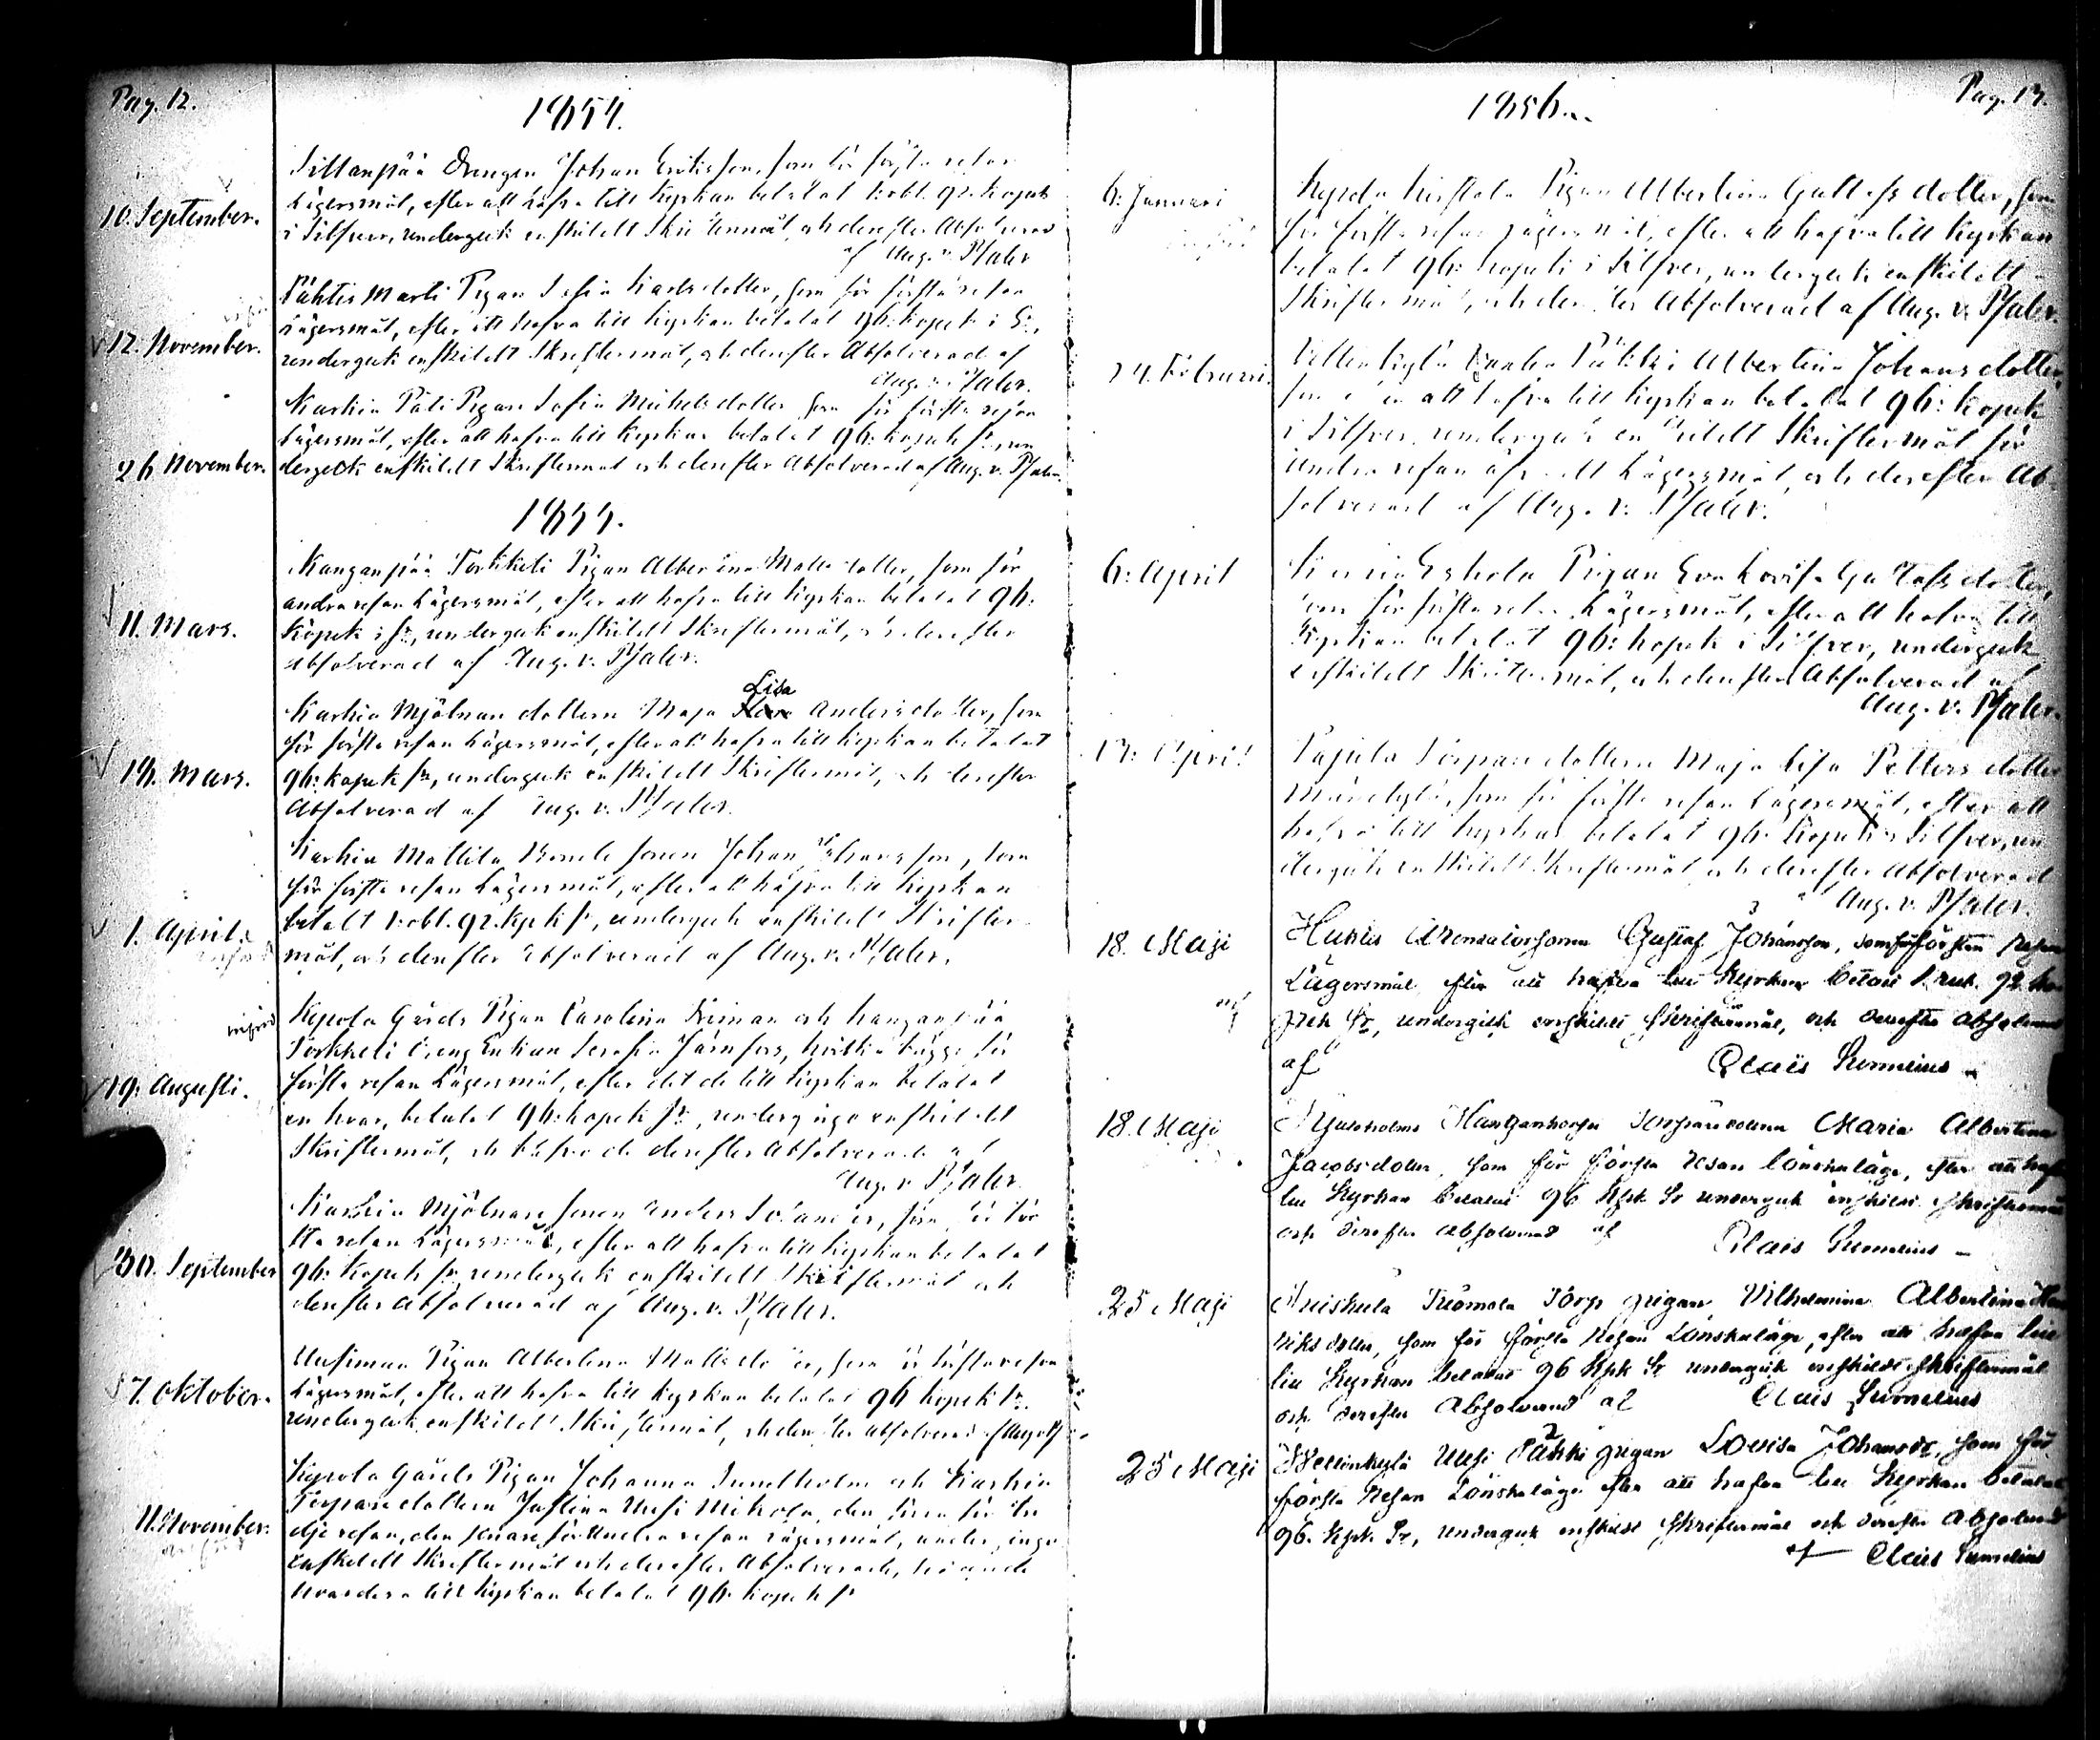 Pag. 12.
1854.
10. September.
Sillanpää Drengen Johan Eriksson, som för första resan
Lägersmål, efter att hafva till Kyrkan betalat 1 robl. 92 kopek
i Silfver, undergick enskildt Skriftermål, och derefter Absolverad
af Aug. v. Pfaler
12. November.
Pähtis Marti Pigan Sofia Karlsdotter, som för första resan
Lägersmål, efter att hafva till Kyrkan betalat 96: kopek i Sr,
undergick enskildt Skriftermål, och derefter Absolverad af
Aug. v. Pfaler.
26 November.
Karkia Päti Pigan Sofia Michelsdotter som för första resan
Lägersmål, efter att hafva till Kyrkan betalat 96: kopek Sr, un
dergick enskildt Skriftermål och derefter Absolverad af Aug. v. Pfaler.
1855.
11. Mars.
Kanganpää Torkkeli Pigan Albertina Matts dotter, som för
andra resan Lägersmål, efter att hafva till Kyrkan betalat 96:
Kopek i Sr, undergick enskildt Skriftermål, och derefter
absolverad af Aug. v. Pfaler.
18. Mars.
Lisa
Karkia Mjölnare dottern Maja Andersdotter, som
för första resan Lägersmål, efter att hafva till Kyrkan betalat
96: kopek Sr, undergick enskildt Skriftermål, och derefter
Absolverad af Aug. v. Pfaler.
1. April.
Karkia Mattila Bonde sonen Johan Johansson, som
för första resan Lägersmål, efter att hafva till Kyrkan
betalt 1 robl. 92. Kpk Sr, undergick enskildt Skrifter
mål, och derefter Absolverad af Aug. v. Pfaler.
införd
19. Augusti.
Kypola Gårds Pigan Carolina Friman och Kanganpää
Torkkeli Dreng Enkan Serafia Järnfors, hvilka bägge för
första resan Lägersmål, efter det de till Kyrkan betalat
en hvar, betalat 96: kopek Sr, undergingo enskildt
Skriftermål, och hafva de derefter Absolverade af
Aug. v. Pfaler.
30. September
Karkia Mjölnare sonen Anders Solander, som för för
sta resan Lägersmål, efter att hafva till Kyrkan betalat
96: Kopek Sr, undergick enskildt Skriftermål och
derefter Absolverad af Aug. v. Pfaler.
7. Oktober.
Uusimaa Pigan Albertina Mattsdotter, som för första resan
Lägersmål, efter att hafva till Kyrkan betalat 96 kopek Sr.
undergick enskildt Skriftermål, och derefter absolverad af Aug Pf
11. November.
Kypola Gårds Pigan Johanna Sundholm och Karkia
Torpare dottern Justina Uusi Mikola, den förra för tre
dje resan, den senare för Andra resan Lägersmål, undergingo
enskildt Skriftermål och derefter Absolverade,
hvardera till Kyrkan betalat 96. kopek Sr
Pag. 13.
1856.
6: Januari
Kypola Pigan Albertina Gustafs dotter, som
för första resan Lägersmål, efter att hafva till Kyrkan
betalat 96: kopek i Silfver, undergick enskildt
Skriftermål, och derefter Absolverad af Aug. v. Pfaler.
24. Februari.
Vellinkylä Pähkki Albertina Johansdotter,
som efter att hafva till Kyrkan betalat 96: Kopek
i Silfver, undergick enskildt Skriftermål för
Andra resan Lägersmål, och derefter Ab
solverad af Aug. v. Pfaler.
6: April
Eskola Pigan Eva Lovisa Gustafsdotter,
som för första resan Lägersmål, efter att hafva till
Kyrkan betalat 96: kopek i Silfver, undergick
enskildt Skriftermål, och derefter Absolverad af
Aug. v. Pfaler.
13: April
Pajula Torpare dottern Maja Lisa Petters dotter
som för första resan Lägersmål, efter att
hafva till Kyrkan betalat 96. Kopek i Silfver, un
dergick enskildt Skriftermål och derefter Absolverad
af Aug. v. Pfaler.
18. Maji
Huhtis Gustaf Johansson, som för första resan
Lägersmål efter att hafva till Kyrkan betalt 1. rub. 92 ko
pek Sr, undergick enskildt skriftermål, och derefter absolverad
af Claës
18. Maji
Maria Albertina
Jacobsdotter, som för första resan lönskaläge, efter att haf
till Kyrkan betalat 96 Kpk Sr undergick enskildt skriftermål
och derefter absolverad af Claës
25 Maji
Torp pigan Vilhelmina Albertina Hen
riksdotter, som för första resan Lönskaläge, efter att hafva
till Kyrkan betalat 96 Kpk Sr undergick enskildt skriftermål
och derefter Absolverad af Claës
25 Maji
Wellinkylä Uusi Pähkki pigan Lovisa Johansdr, som för
första resan Lönskaläge efter att hafva till Kyrkan betalat
96. Kpk Sr, undergick enskildt skriftermål och derefter Absolverad
af Claës